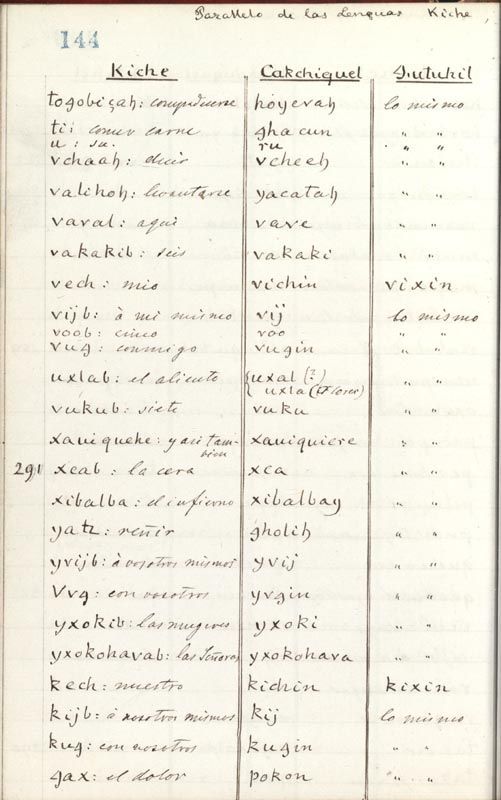 Parallelo de las Lenguas Kiche
144
Kiche Cakchiquel Zutuhil
togobiçah: compadecerse hoyevah lo mismo
tii: comer carne gha cun " "
u: su. ru " "
vchaah: decir vcheeh " "
valihoh: levantarse yacatah " "
varal: aqui vave " "
vakakib: seis vakaki " "
vech: mio vichin vixin
vijb: à mi mismo vij lo mismo
voob: cinco voo " "
vug: conmigo vugin " "
uxlab: el aliento { uxal (?) " "
uxla (Flores)
vukub: siete vuku " "
xaviquehe: y asi tam- xaviquiere " "
bien
291 xcab: la cera xca " "
xibalba: el infierno xibalbay " "
yatz: reñir gholih " "
yvijb: à vosotros mismos yvij " "
Yvg: con vosotros yvgin " "
yxokib: las mugeres yxoki " "
yxokohavab: las Señoras yxokohava " "
kech: nuestro kichin kixin
kijb: à nosotros mismos kij lo mismo
kug: con nosotros kugin " "
gax: el dolor pokon " "